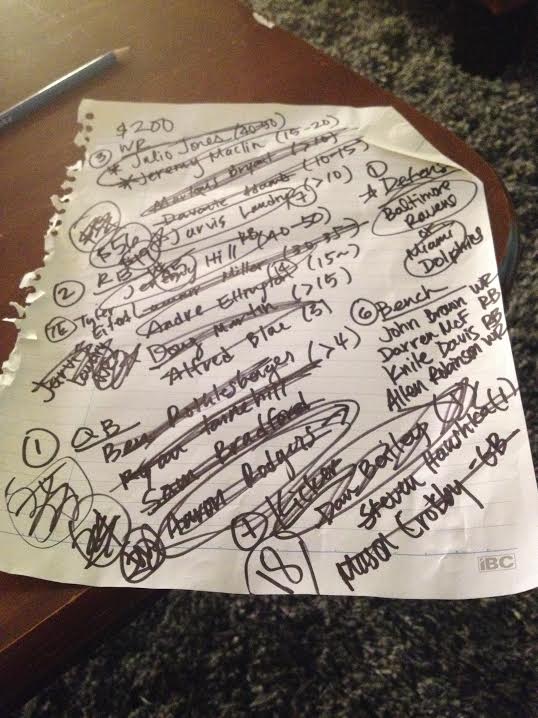 $200
③ WR
* Julio Jones (40-50)
* Jeremy Maclin (15-20)
Martavis Bryant (>10)
Davante Adams (10-15)
* Jarvis Landry (>10)
7
$56
② RB
Jeremy Hill RB (40-50)
Lamar Miller (30-35)
14
TE Tyler Eifert
Andre Ellington (15~)
Doug Martin (>15)
Alfred Blue (3)
① QB
Ben Rothlesberger (>4)
Ryan Tannehill
Sam Bradford
Aaron Rodgers
① Defense
* Baltimore
Ravens
or
Miami
Dolphins
⑥ Bench
John Brown WR
Darren McF RB
Knile Davis RB
Allen Robinson WR
① Kicker
Dan Bailey (1)
Steven Haushka (1)
Mason Crosby - GB
18
iBC